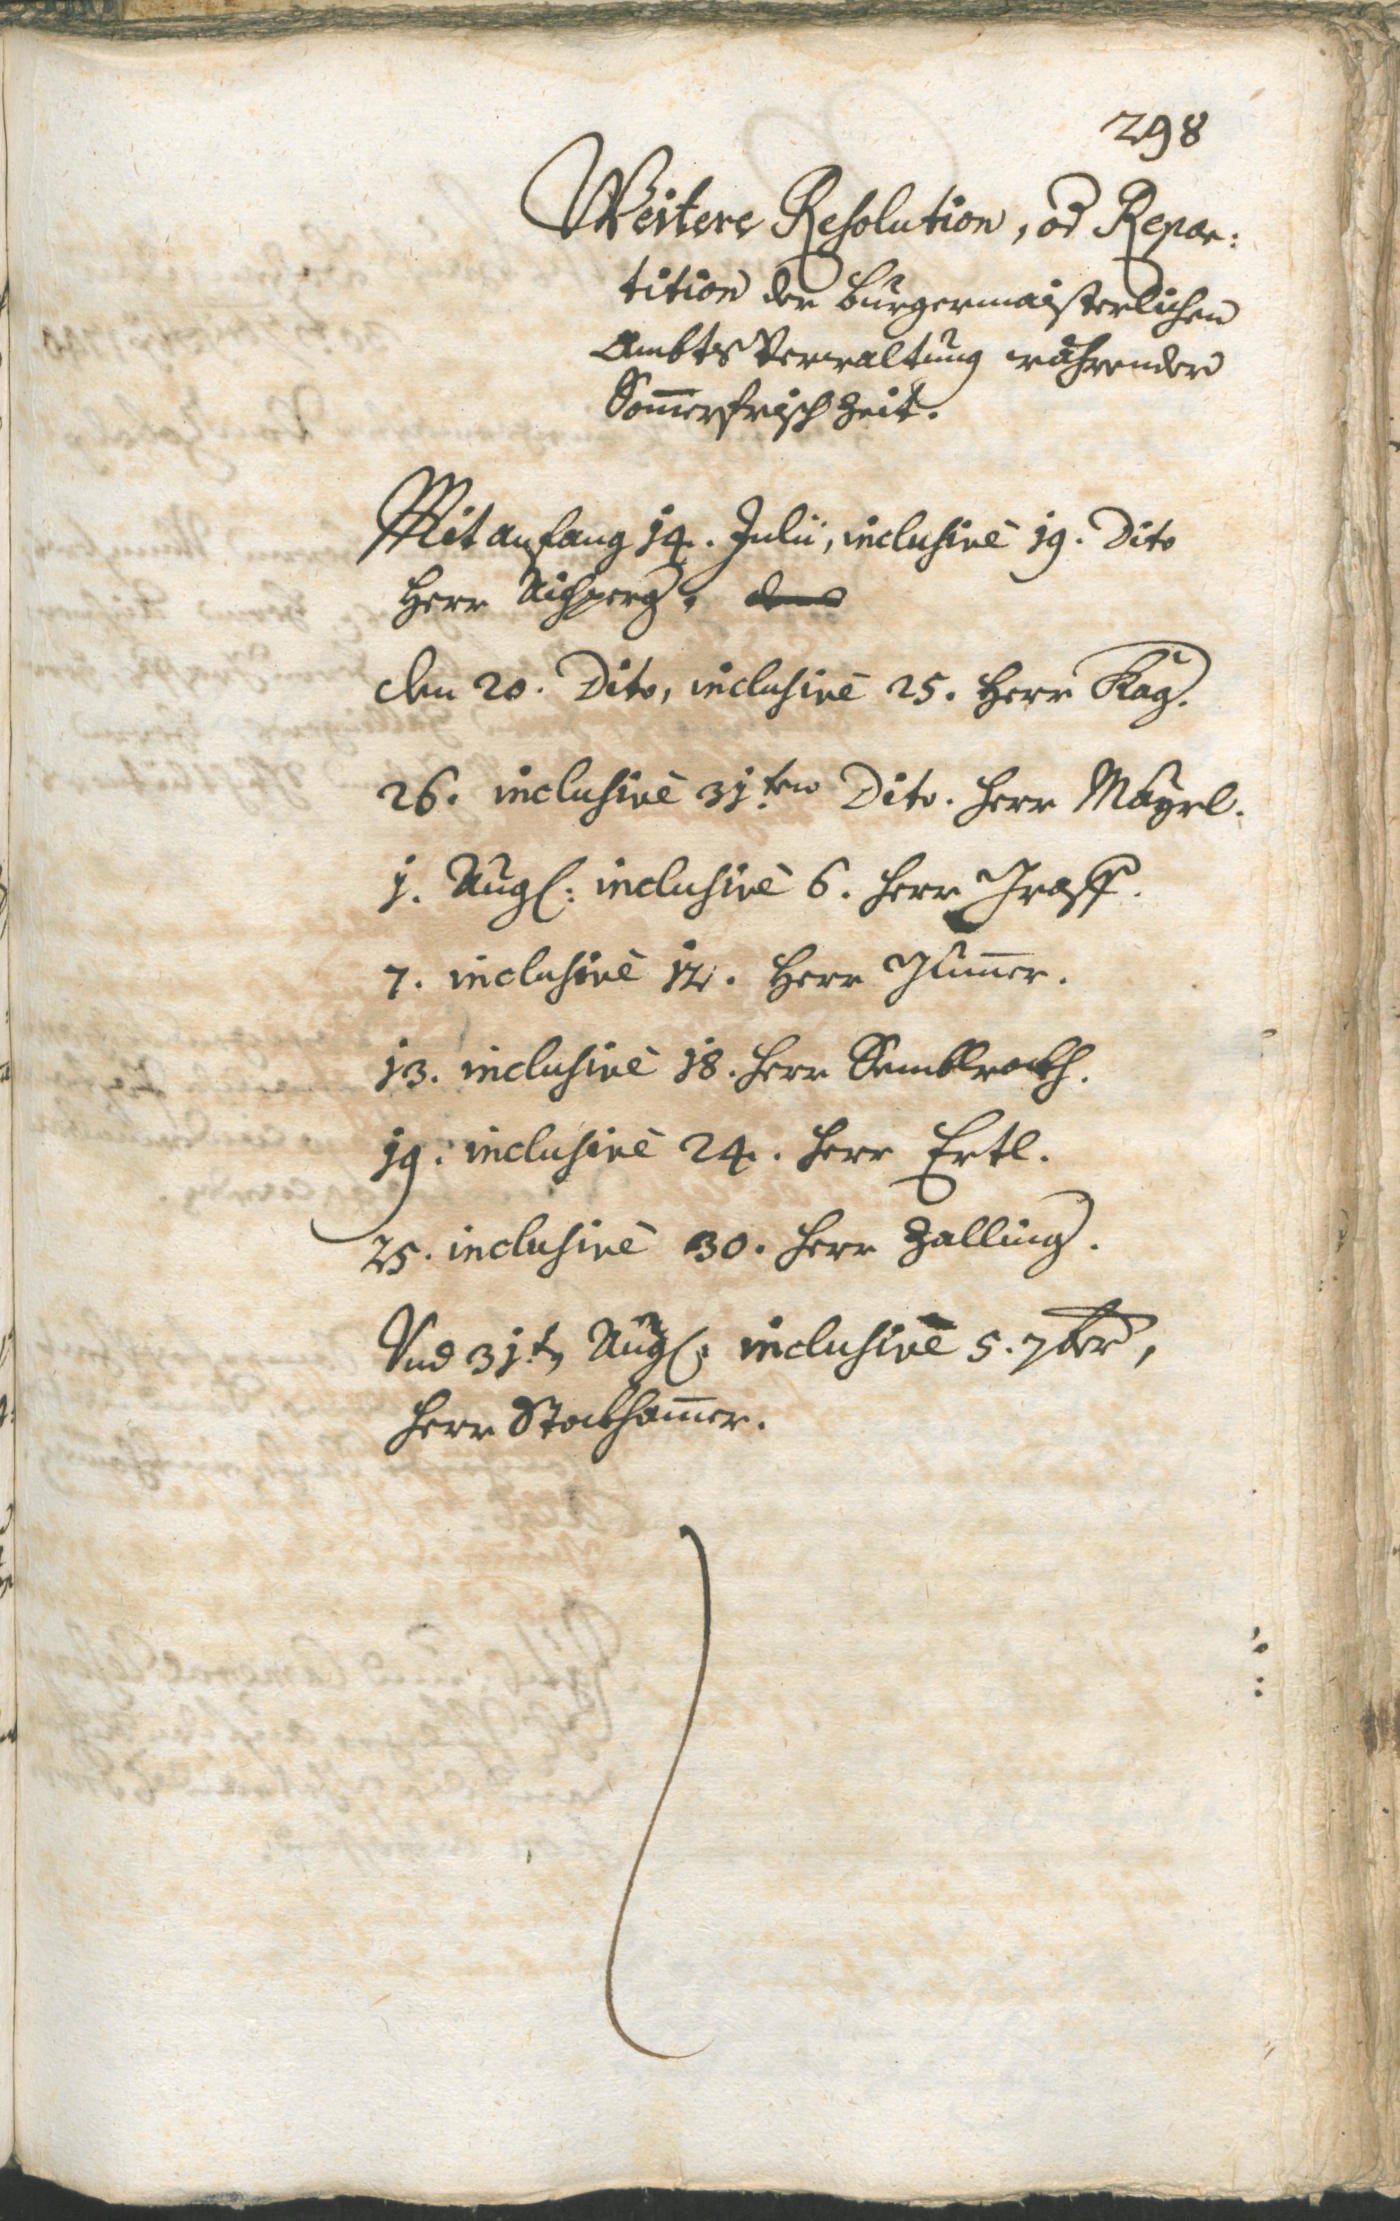 298
Weitere Resolution, od Repar:
tition der burgermaisterlichen
Ambts Verwaltung währender
Som̄erfrisch Zeit.
Mit anfang 14. Julii, inclusivè 19. Dito
Herr Aichperg.
den 20. Dito, inclusivè 25. Herr Kag.
26. inclusivè 31.ten Dito. Herr Mayrl.
1. Aug: inclusivè 6. Herr Graff.
7. inclusivè 12. Herr Gum̄er.
13. inclusivè 18. Herr Semblrockh.
19. inclusivè 24. Herr Ertl.
25. inclusivè 30. Herr Zalling.
Und 31.tn Aug: inclusivè 5. 7ber,
Herr Stockham̄er.